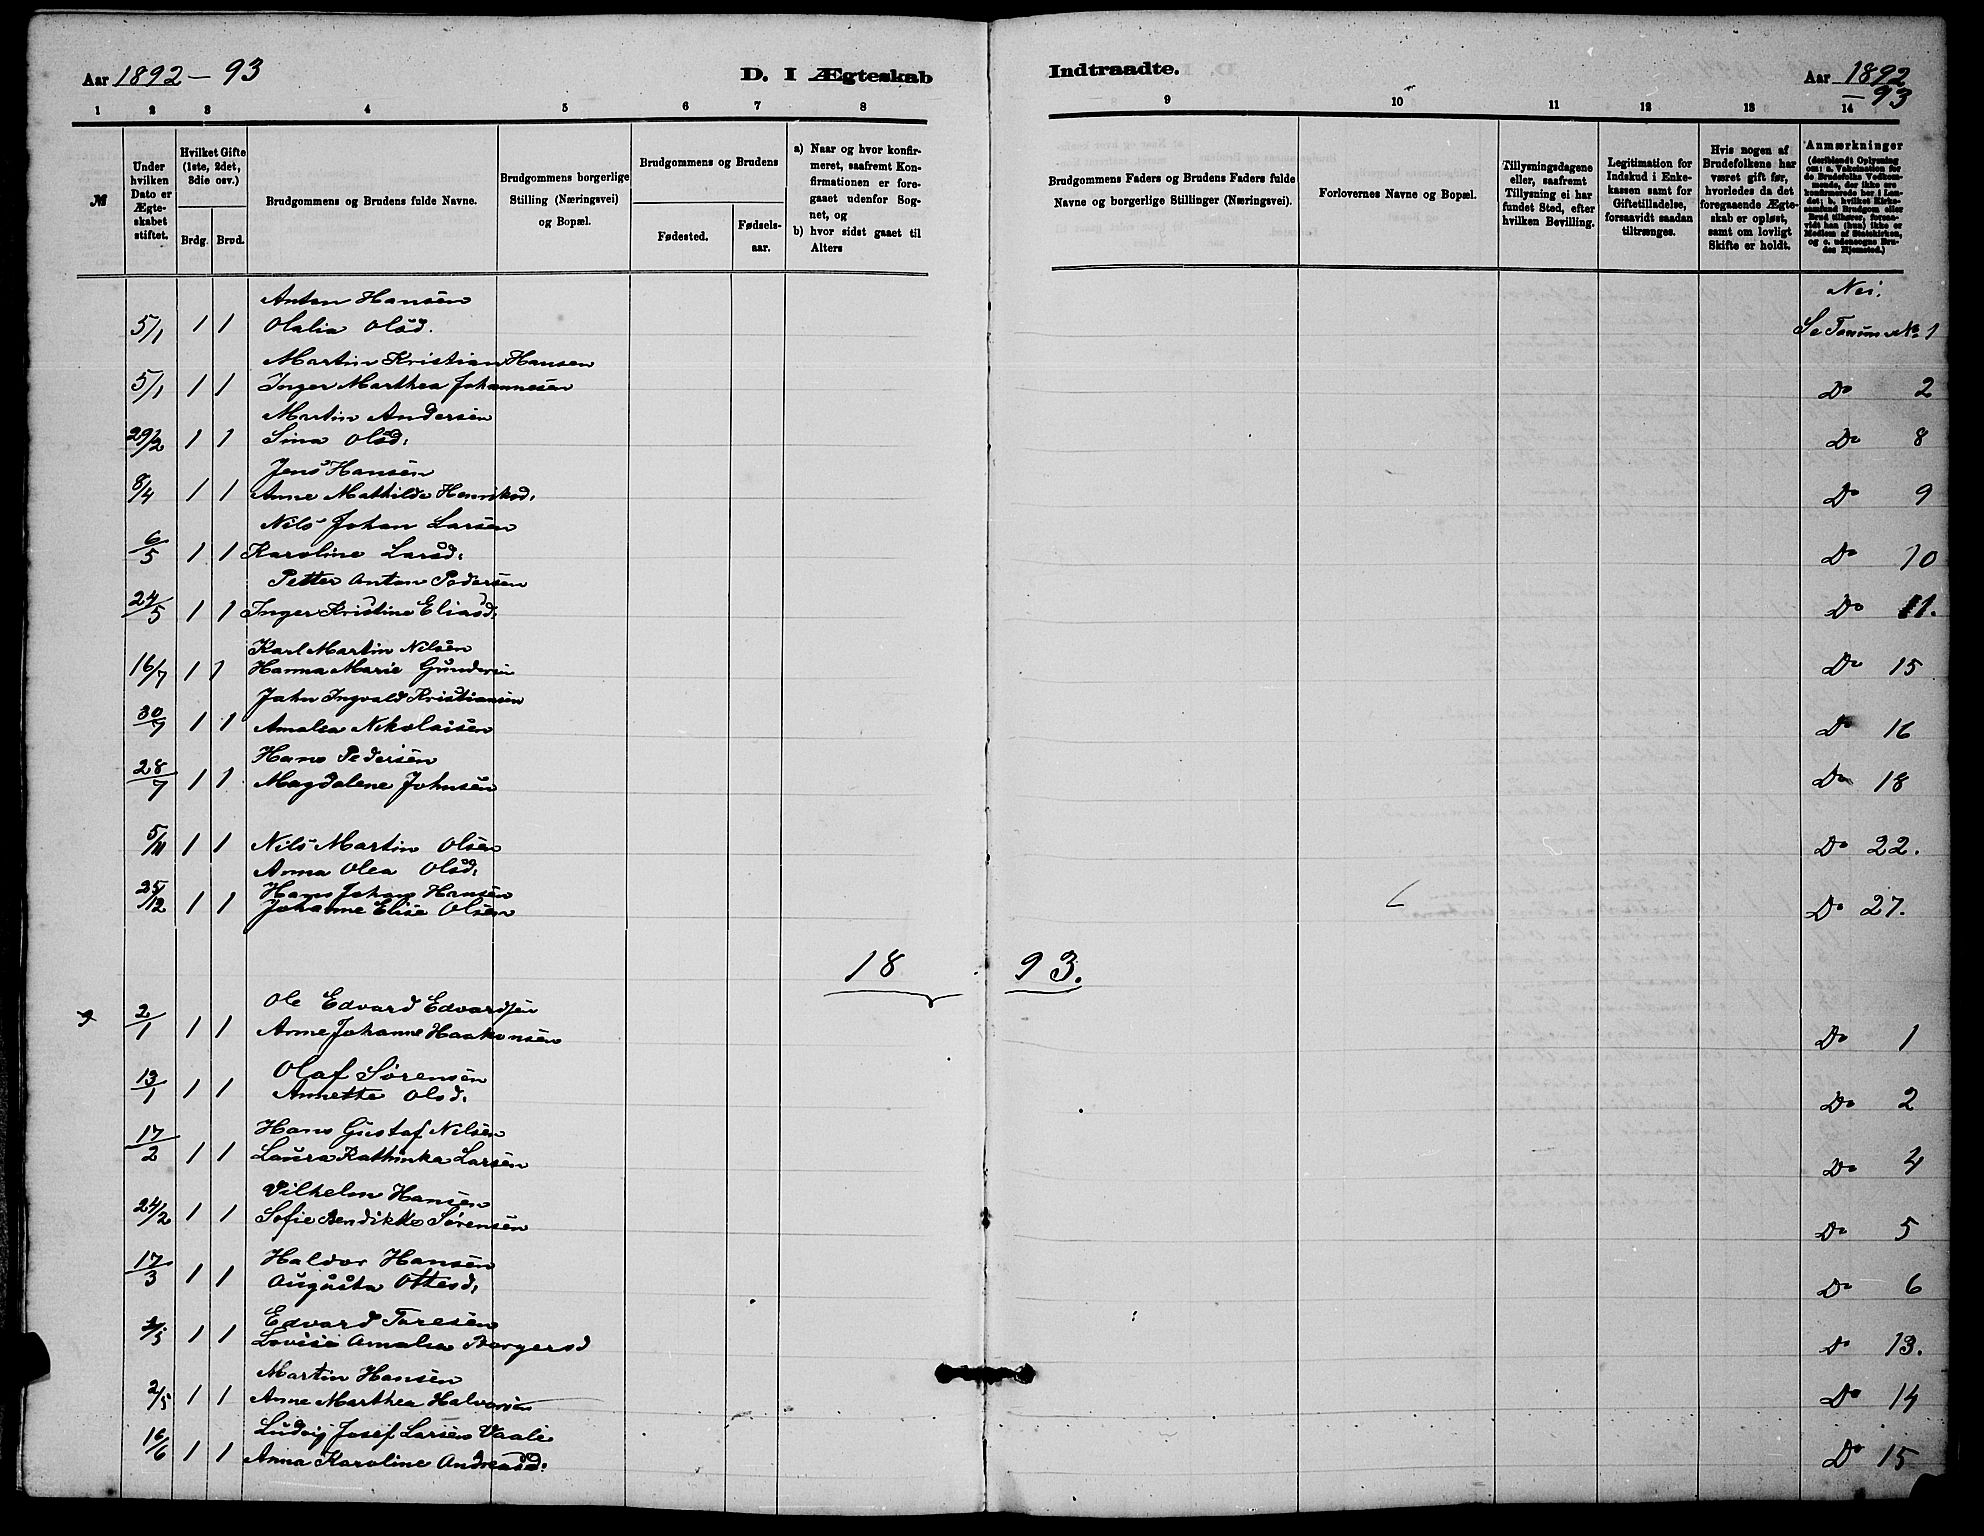 Aar 1892 – 93
D. I Ægteskab
Indtraadte.
Aar 1892 – 93
1 2 3 4 5 6 7 8 9 10 11 12 13 14
№
Under hvilken Dato er Ægteskabet stiftet.
Hvilket Gifte (1ste, 2det, 3die osv.)
Brdg. Brud.
Brudgommens og Brudens fulde Navne.
Brudgommens borgerlige Stilling (Næringsvei) og Bopæl.
Brudgommens og Brudens
Fødested.
Fødselsaar.
a) Naar og hvor konfirmeret, saafremt Konfirmationen er foregaaet udenfor Sognet, og
b) hvor sidst gaaet til Alters
Brudgommens Faders og Brudens Faders fulde Navne og borgerlige Stillinger (Næringsvei).
Forlovernes Navne og Bopæl.
Tillysningsdagene eller, saafremt Tillysning ei har fundet Sted, efter hvilken Bevilling.
Legitimation for Indskud i Enkekassen samt for Giftetilladelse, forsaavidt saadan tiltrænges.
Hvis nogen af Brudefolkene har været gift før, hvorledes da det foregaaende Ægteskab er opløst, samt om lovligt Skifte er holdt.
Anmærkninger
(deriblandt Oplysning om: a. Vakcination for de Brudefolks Vedkommende, der ikke ere konfirmerede her i Landet; b. hvilket Kirkesamfund Brudgom eller Brud tilhører, forsaavidt han (hun) ikke er Medlem af Statskirken, og c. udensogns Brudes Hjemsted.)
Anton Hansen Nei.
5/1 1 1 Olalia Olsd. Se № 1
Martin Kristian Hansen
5/1 1 1 Inger Marthea Johannesen Do 2
Martin Andersen
29/2 1 1 Sina Olsd: Do 8
Jens Hansen
8/4 1 1 Anne Mathilde Henriksd: Do 9
Nils Johan Larsen
6/5 1 1 Karoline Larsd: Do 10
Petter Anton Pedersen
24/5 1 1 Inger Kristine Eliasd: Do 11.
Karl Martin Nilsen
16/7 1 1 Hanna Marie Gundersen Do 15
John Ingvald Kristiansen
30/7 1 1 Amalia Nikolaisen Do 16
Hans Pedersen
28/7 1 1 Magdalene Johnsen Do 18
5/11 1 1 Nils Martin Olsen Do 22.
Anna Olea Olsd:
Hans Johan Hansen
25/12 1 1 Johanne Elise Olsen Do 27.
18 93.
Ole Edvard Edvardsen
2/1 1 1 Anne Johanne Haakonsen Do 1
Olaf Sørensen
13/1 1 1 Annette Olsd. Do 2
Hans Gustaf Nilsen
17/2 1 1 Laura Kathinka Larsen Do 4
Vilhelm Hansen
24/2 1 1 Sofie Bendikke Sørensen Do 5
Haldor Hansen
17/3 1 1 Augusta Ottesd. Do 6
Edvard Toresen
2/5 1 1 Lovise Amalia Borgersd Do 13.
Martin Hansen
2/5 1 1 Anne Marthea Halvorsen Do 14
Ludvig Josef Larsen Vaale
16/6 1 1 Anna Karoline Andreasd: Do 15